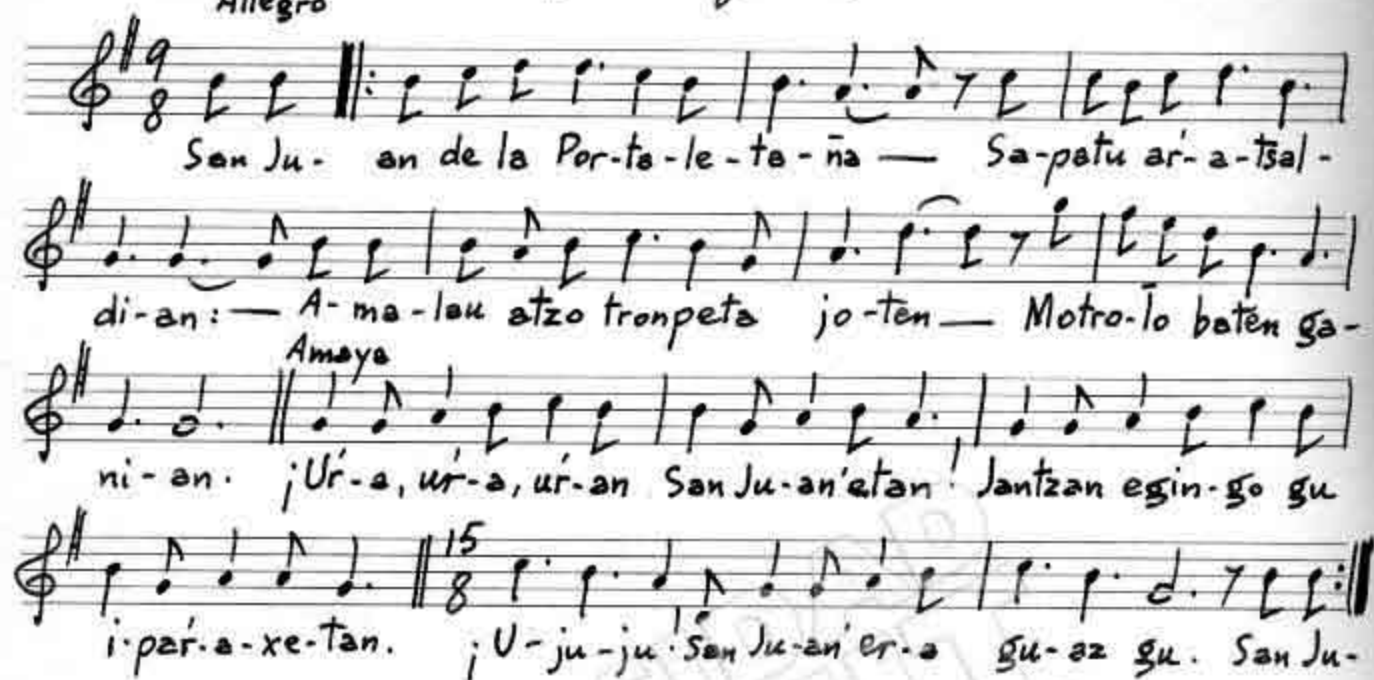 Allegro
9
8
San Ju- an de la Por-ta-le-ta-ña — Sa-patu aŕ-a-tsal-
di-an: — A-ma-lau atzo tronpeta jo-ten — Motro-lo baten ga-
Amaya
ni-an. ¡Uŕ-a, uŕ-a, uŕ-an San Ju-an'etan! Jantzan egin-go gu
15
8
i-paŕ-a-xe-tan. ¡U-ju-ju! San Ju-an'er-a gu-az gu. San Ju-